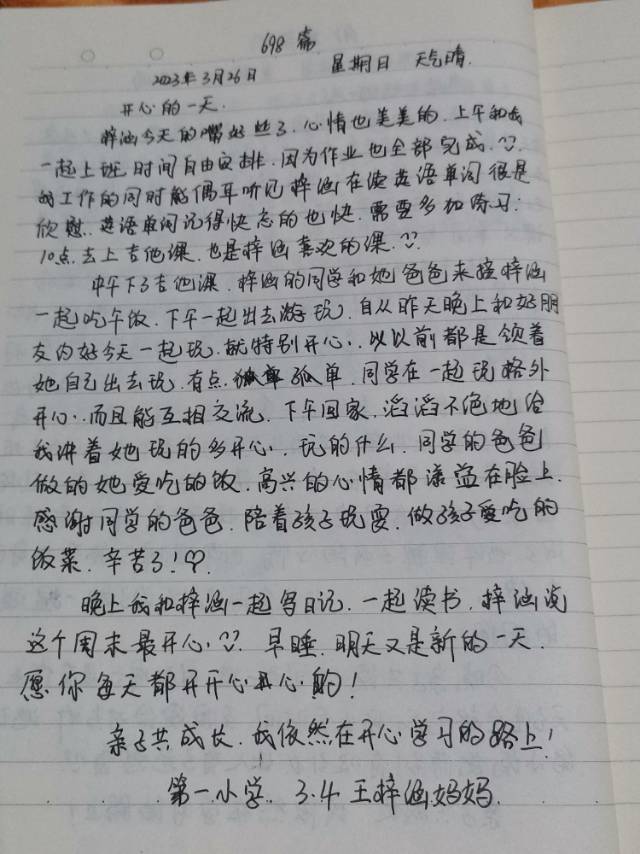 698篇
2023年3月26日 星期日 天气晴.
开心的一天.
梓涵今天的嘴好些了.心情也美美的.上午和我
一起上班.时间自由安排.因为作业也全部完成.
我工作的同时能偶耳听见梓涵在读英语单词很是
欣慰.英语单词记得快忘的也快.需要多加练习.
10点.去上吉他课.也是梓涵喜欢的课.
中午下了吉他课.梓涵的同学和她爸爸来接梓涵
一起吃午饭.下午一起出去游玩.自从昨天晚上和好朋
友约好今天一起玩.就特别开心.以以前都是领着
她自己出去玩.有点孤单.同学在一起玩格外
开心.而且能互相交流.下午回家.滔滔不绝地给
我讲着她玩的多开心.玩的什么.同学的爸爸
做的她爱吃的饭.高兴的心情都洋溢在脸上.
感谢同学的爸爸.陪着孩子玩耍.做孩子爱吃的
饭菜.辛苦了!♡.
晚上我和梓涵一起写日记.一起读书.梓涵说
这个周末最开心.早睡.明天又是新的一天.
愿你每天都开开心心的!
亲子共成长.我依然在开心学习的路上!
第一小学.3.4王梓涵妈妈.